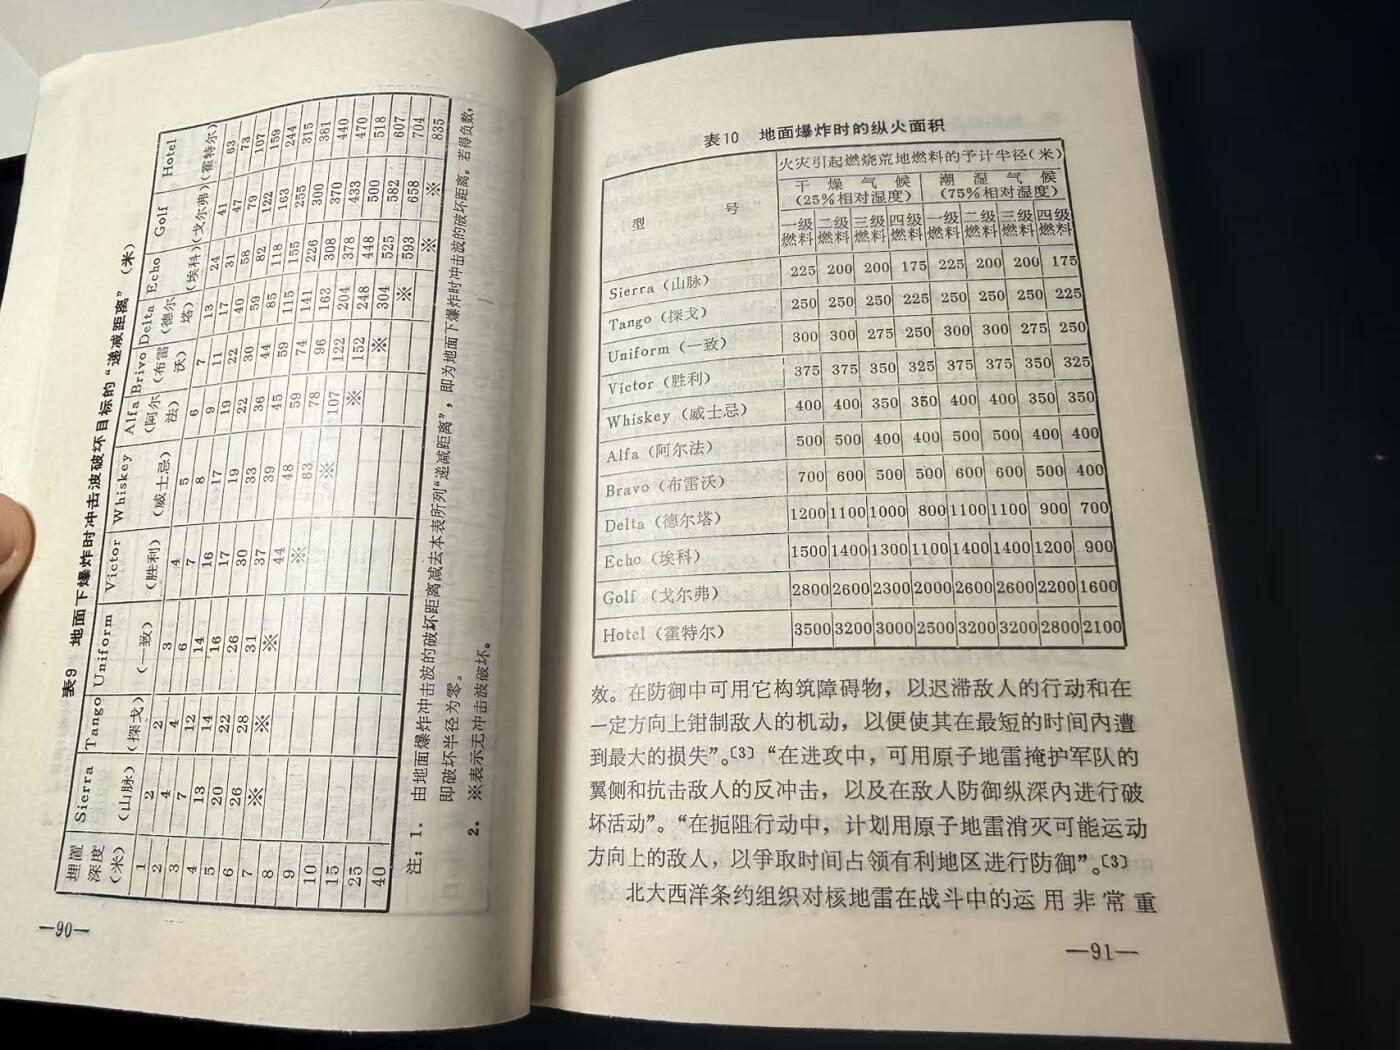 表9 地面下爆炸时冲击波破坏目标的“递减距离”(米)
埋置深度(米) Sierra(山脉) Tango(探戈) Uniform(一致) Victor(胜利) Whiskey(威士忌) Alfa(阿尔法) Brivo(布雷沃) Delta(德尔塔) Echo(埃科) Golf(戈尔弗) Hotel(霍特尔)
1 2 2 3 4 5 6 7 13 24 41 63
2 4 4 6 7 8 9 11 17 31 47 73
3 7 12 14 16 17 19 22 40 58 79 107
4 13 14 16 17 19 22 30 59 82 122 159
5 20 22 26 30 33 36 44 85 118 163 244
6 26 28 31 37 39 45 59 115 155 255 315
7 ※ ※ ※ 44 48 59 74 141 226 300 381
8 ※ 63 78 96 163 308 370 440
9 ※ 107 122 204 378 433 470
10 ※ 152 248 448 500 518
15 ※ 304 525 582 607
25 ※ 593 658 704
40 ※ ※ 835
注：1. 由地面爆炸冲击波的破坏距离减去本表所列“递减距离”，即为地面下爆炸时冲击波的破坏距离。若得负数，
即破坏半径为零。
2. ※表示无冲击波破坏。
—90—
表10 地面爆炸时的纵火面积
型 号
火灾引起燃烧荒地燃料的予计半径(米)
干燥气候 潮湿气候
(25%相对湿度) (75%相对湿度)
一级燃料 二级燃料 三级燃料 四级燃料 一级燃料 二级燃料 三级燃料 四级燃料
Sierra(山脉) 225 200 200 175 225 200 200 175
Tango(探戈) 250 250 250 225 250 250 250 225
Uniform(一致) 300 300 275 250 300 300 275 250
Victor(胜利) 375 375 350 325 375 375 350 325
Whiskey(威士忌) 400 400 350 350 400 400 350 350
Alfa(阿尔法) 500 500 400 400 500 500 400 400
Bravo(布雷沃) 700 600 500 500 600 600 500 400
Delta(德尔塔) 1200 1100 1000 800 1100 1100 900 700
Echo(埃科) 1500 1400 1300 1100 1400 1400 1200 900
Golf(戈尔弗) 2800 2600 2300 2000 2600 2600 2200 1600
Hotel(霍特尔) 3500 3200 3000 2500 3200 3200 2800 2100
效。在防御中可用它构筑障碍物，以迟滞敌人的行动和在
一定方向上钳制敌人的机动，以便使其在最短的时间内遭
到最大的损失”。〔3〕“在进攻中，可用原子地雷掩护军队的
翼侧和抗击敌人的反冲击，以及在敌人防御纵深内进行破
坏活动”。“在扼阻行动中，计划用原子地雷消灭可能运动
方向上的敌人，以争取时间占领有利地区进行防御”。〔3〕
北大西洋条约组织对核地雷在战斗中的运用非常重
—91—